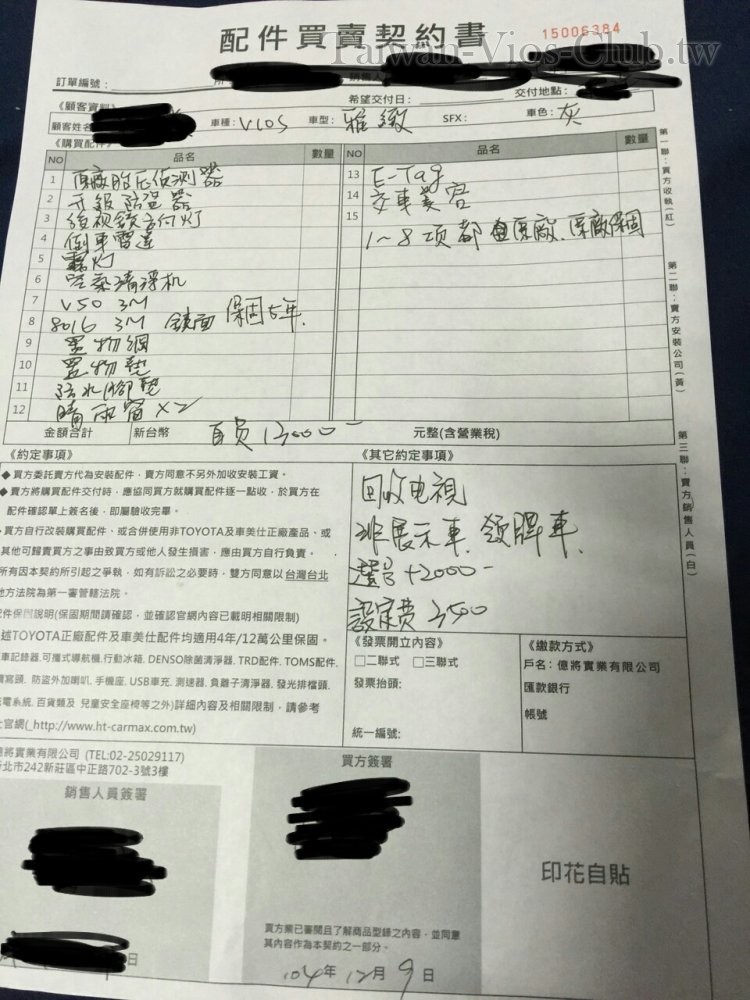 配件買賣契約書
15006384
Taiwan-Vios-Club.tw
訂單編號：
希望交付日：
交付地點：
《顧客資料
顧客姓名
車種：VIOS
車型：雅緻
SFX：
車色：灰
《購買配件》
NO 品名 數量 NO 品名 數量
1 原廠胎压偵測器
2 升級防盜器
3 後視鏡方向灯
4 倒車雷達
5 霧灯
6 空氣清淨机
7 V50 3M
8 8016 3M 鏡面 保固5年.
9 置物網
10 置物墊
11 防水腳墊
12 晴雨窗 x2
13 E-Tag
14 交車美容
15
1~8項都 原廠、原廠保固
金額合計 新台幣 13000- 元整(含營業稅)
第一聯：買方收執(紅)
第二聯：賣方安裝公司(黃)
第三聯：賣方銷售人員(白)
《約定事項》
◆買方委託賣方代為安裝配件，賣方同意不另外加收安裝工資。
◆賣方將購買配件交付時，應協同買方就購買配件逐一點收，於買方在
配件確認單上簽名後，即屬驗收完畢。
買方自行改裝購買配件、或合併使用非TOYOTA及車美仕正廠產品、或
其他可歸責買方之事由致買方或他人發生損害，應由買方自行負責。
所有因本契約所引起之爭執，如有訴訟之必要時，雙方同意以台灣台北
地方法院為第一審管轄法院。
件保固說明(保固期間請確認，並確認官網內容已載明相關限制)
述TOYOTA正廠配件及車美仕配件均適用4年/12萬公里保固。
車記錄器.可攜式導航機.行動冰箱. DENSO除菌清淨器. TRD配件. TOMS配件.
寫頭. 防盜外加喇叭. 手機座. USB車充. 測速器. 負離子清淨器. 發光排檔頭.
電系統. 百貨類及 兒童安全座椅等之外)詳細內容及相關限制，請參考
官網(_http://www.ht-carmax.com.tw)
《其它約定事項》
回收电視
非展示車 領牌車.
選号+2000-
設定費 3500
《發票開立內容》
□二聯式 □三聯式
發票抬頭：
統一編號：
《繳款方式》
戶名：億將實業有限公司
匯款銀行
帳號
將實業有限公司 (TEL:02-25029117)
北市242新莊區中正路702-3號3樓
銷售人員簽署
日
買方簽署
買方業已審閱且了解商品型錄之內容，並同意
其內容作為本契約之一部分。
104年12月9日
印花自貼